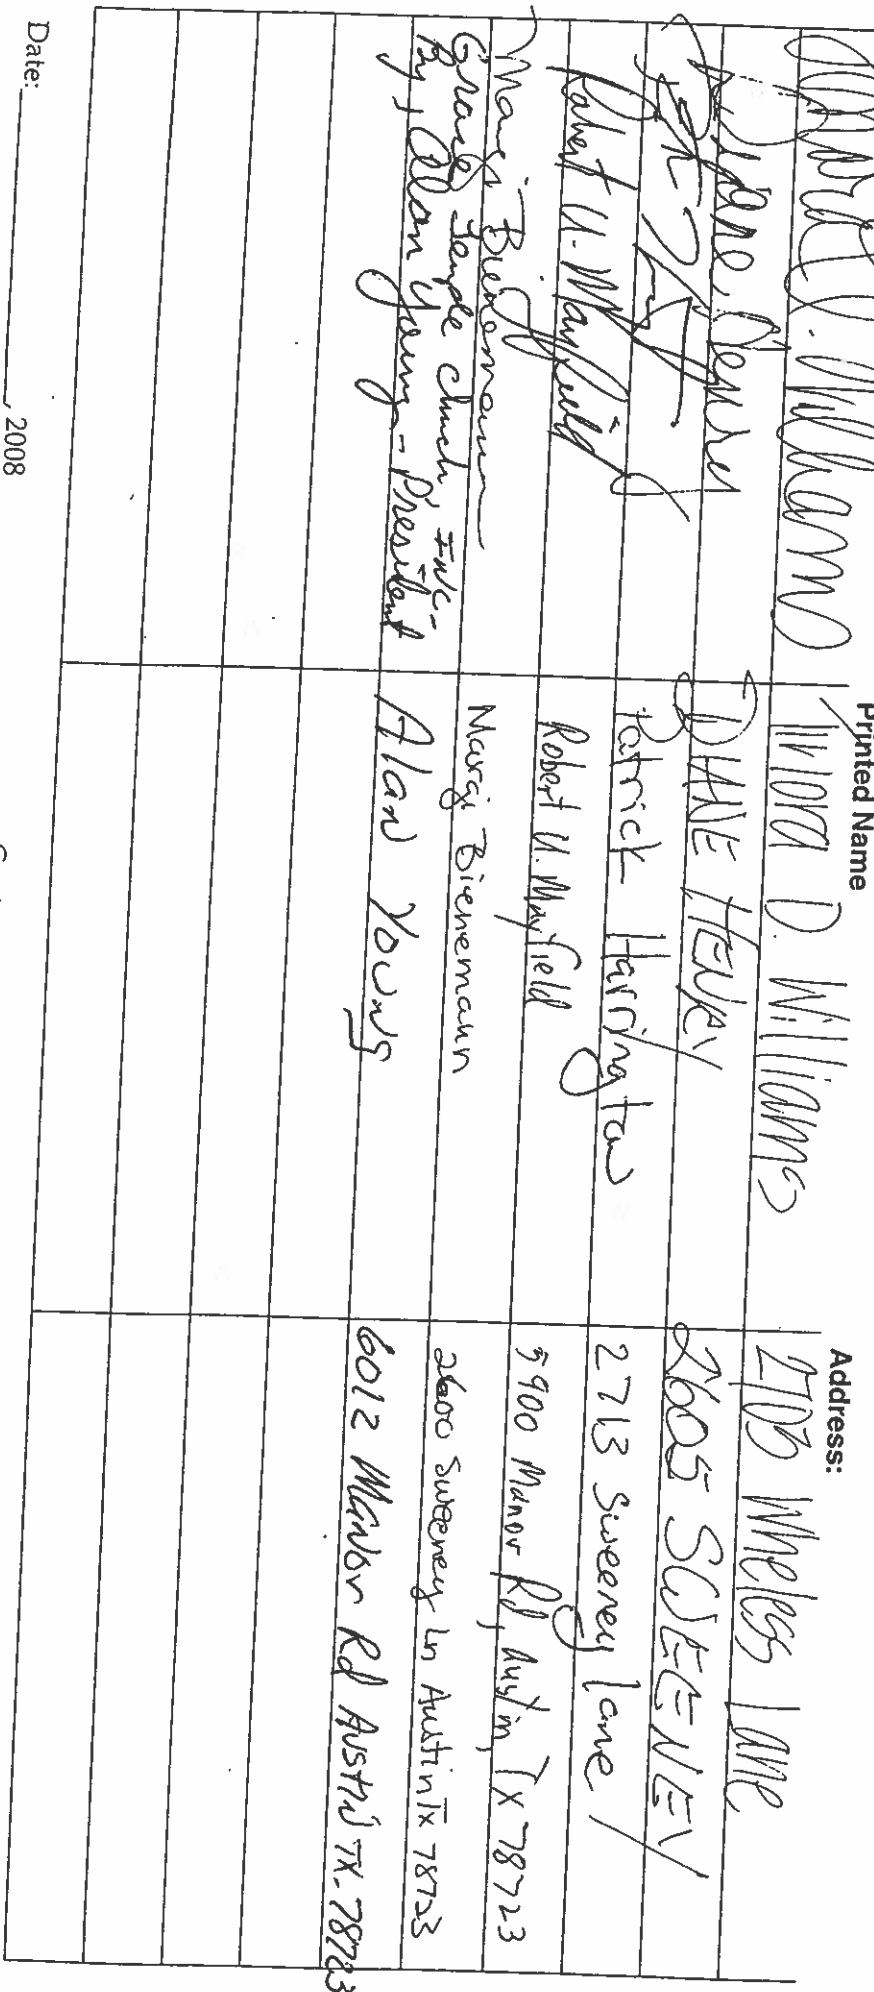 Printed Name Address:
D. Williams 2703 Wheless Lane
Diane Henry DIANE HENRY 2605 SWEENEY
Patrick Harrington 2713 Sweeney lane
Robert U. Mayfield Robert U. Mayfield 5900 Manor Rd, Austin, Tx 78723
Margi Bienemann Margi Bienemann 2600 Sweeney Ln Austin Tx 78723
Grace Temple Church, Inc-
By, Alan Young - President Alan Young 6012 Manor Rd Austin TX-78723
Date: , 2008